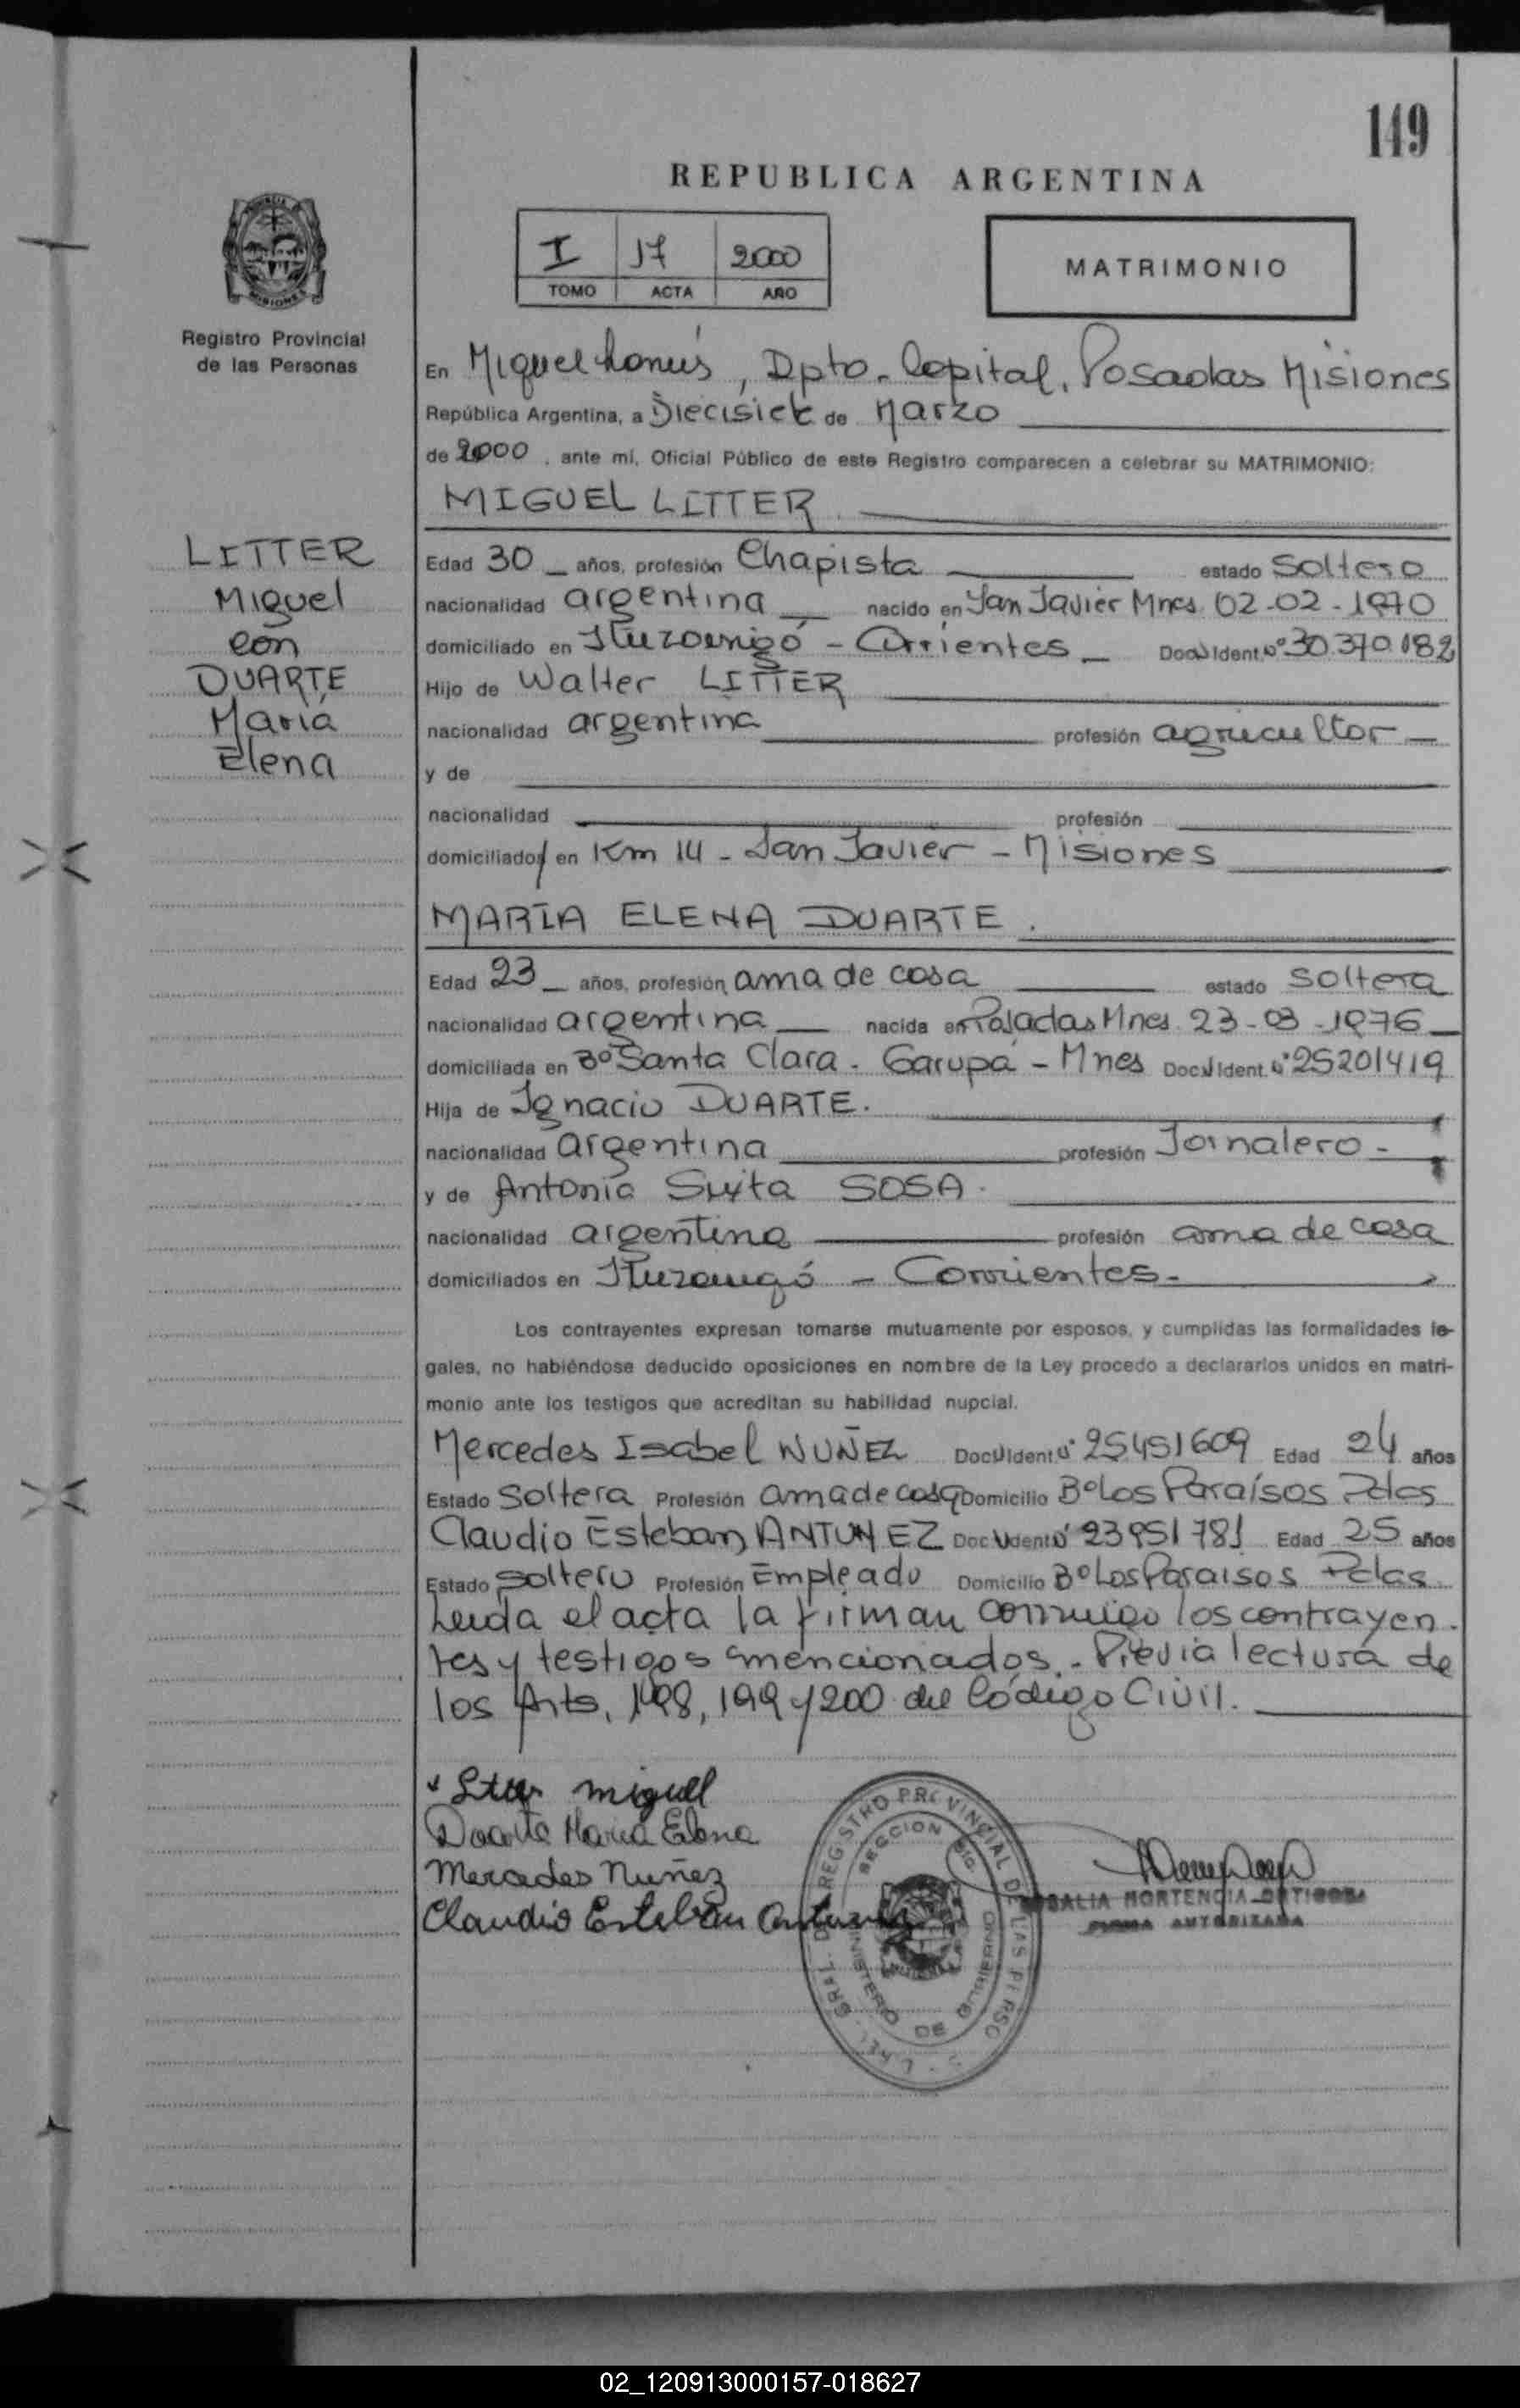 149
REPUBLICA ARGENTINA
I 17 2000
TOMO ACTA AÑO
MATRIMONIO
Registro Provincial
de las Personas
En Miguel Lanús, Dpto. Capital, Posadas Misiones
República Argentina, a Diecisiete de Marzo
de 2000, ante mí, Oficial Público de este Registro comparecen a celebrar su MATRIMONIO:
MIGUEL LITTER
LITTER
Miguel
con
DUARTE
María
Elena
Edad 30 años, profesión Chapista estado Soltero
nacionalidad argentina nacido en San Javier Mnes. 02-02-1970
domiciliado en Ituzaingó - Corrientes Doc. Ident. Nº 30.370.182
Hijo de Walter LITTER
nacionalidad argentina profesión agricultor
y de
nacionalidad profesión
domiciliado/ en Km 14 - San Javier - Misiones
MARIA ELENA DUARTE.
Edad 23 años, profesión ama de casa estado Soltera
nacionalidad argentina nacida en Posadas Mnes. 23-03-1976
domiciliada en Bº Santa Clara - Garupá - Mnes Doc. Ident. Nº 25201419
Hija de Ignacio DUARTE.
nacionalidad argentina profesión Jornalero -
y de Antonia SOSA.
nacionalidad argentina profesión ama de casa
domiciliados en Ituzaingó - Corrientes -
Los contrayentes expresan tomarse mutuamente por esposos, y cumplidas las formalidades le-
gales, no habiéndose deducido oposiciones en nombre de la Ley procedo a declararlos unidos en matri-
monio ante los testigos que acreditan su habilidad nupcial.
Mercedes Isabel NUÑEZ Doc. Ident. Nº 25451609 Edad 24 años
Estado Soltera Profesión ama de casa Domicilio Bº Los Paraísos Pdas
Claudio Esteban ANTUNEZ Doc. Ident. Nº 23951781 Edad 25 años
Estado Soltero Profesión Empleado Domicilio Bº Los Paraisos Pdas.
Leída el acta la firman conmigo los contrayen-
tes y testigos mencionados. - Previa lectura de
los Arts. 198, 199 y 200 del Código Civil.
Litter miguel
Duarte María Elena
Mercedes Nuñez
Claudio Esteban Antunez
REGISTRO PROVINCIAL DE LAS PERSO
SECCION
MINISTERIO DE GOBIERNO
HORTENCIA
FIRMA AUTORIZADA
02_120913000157-018627